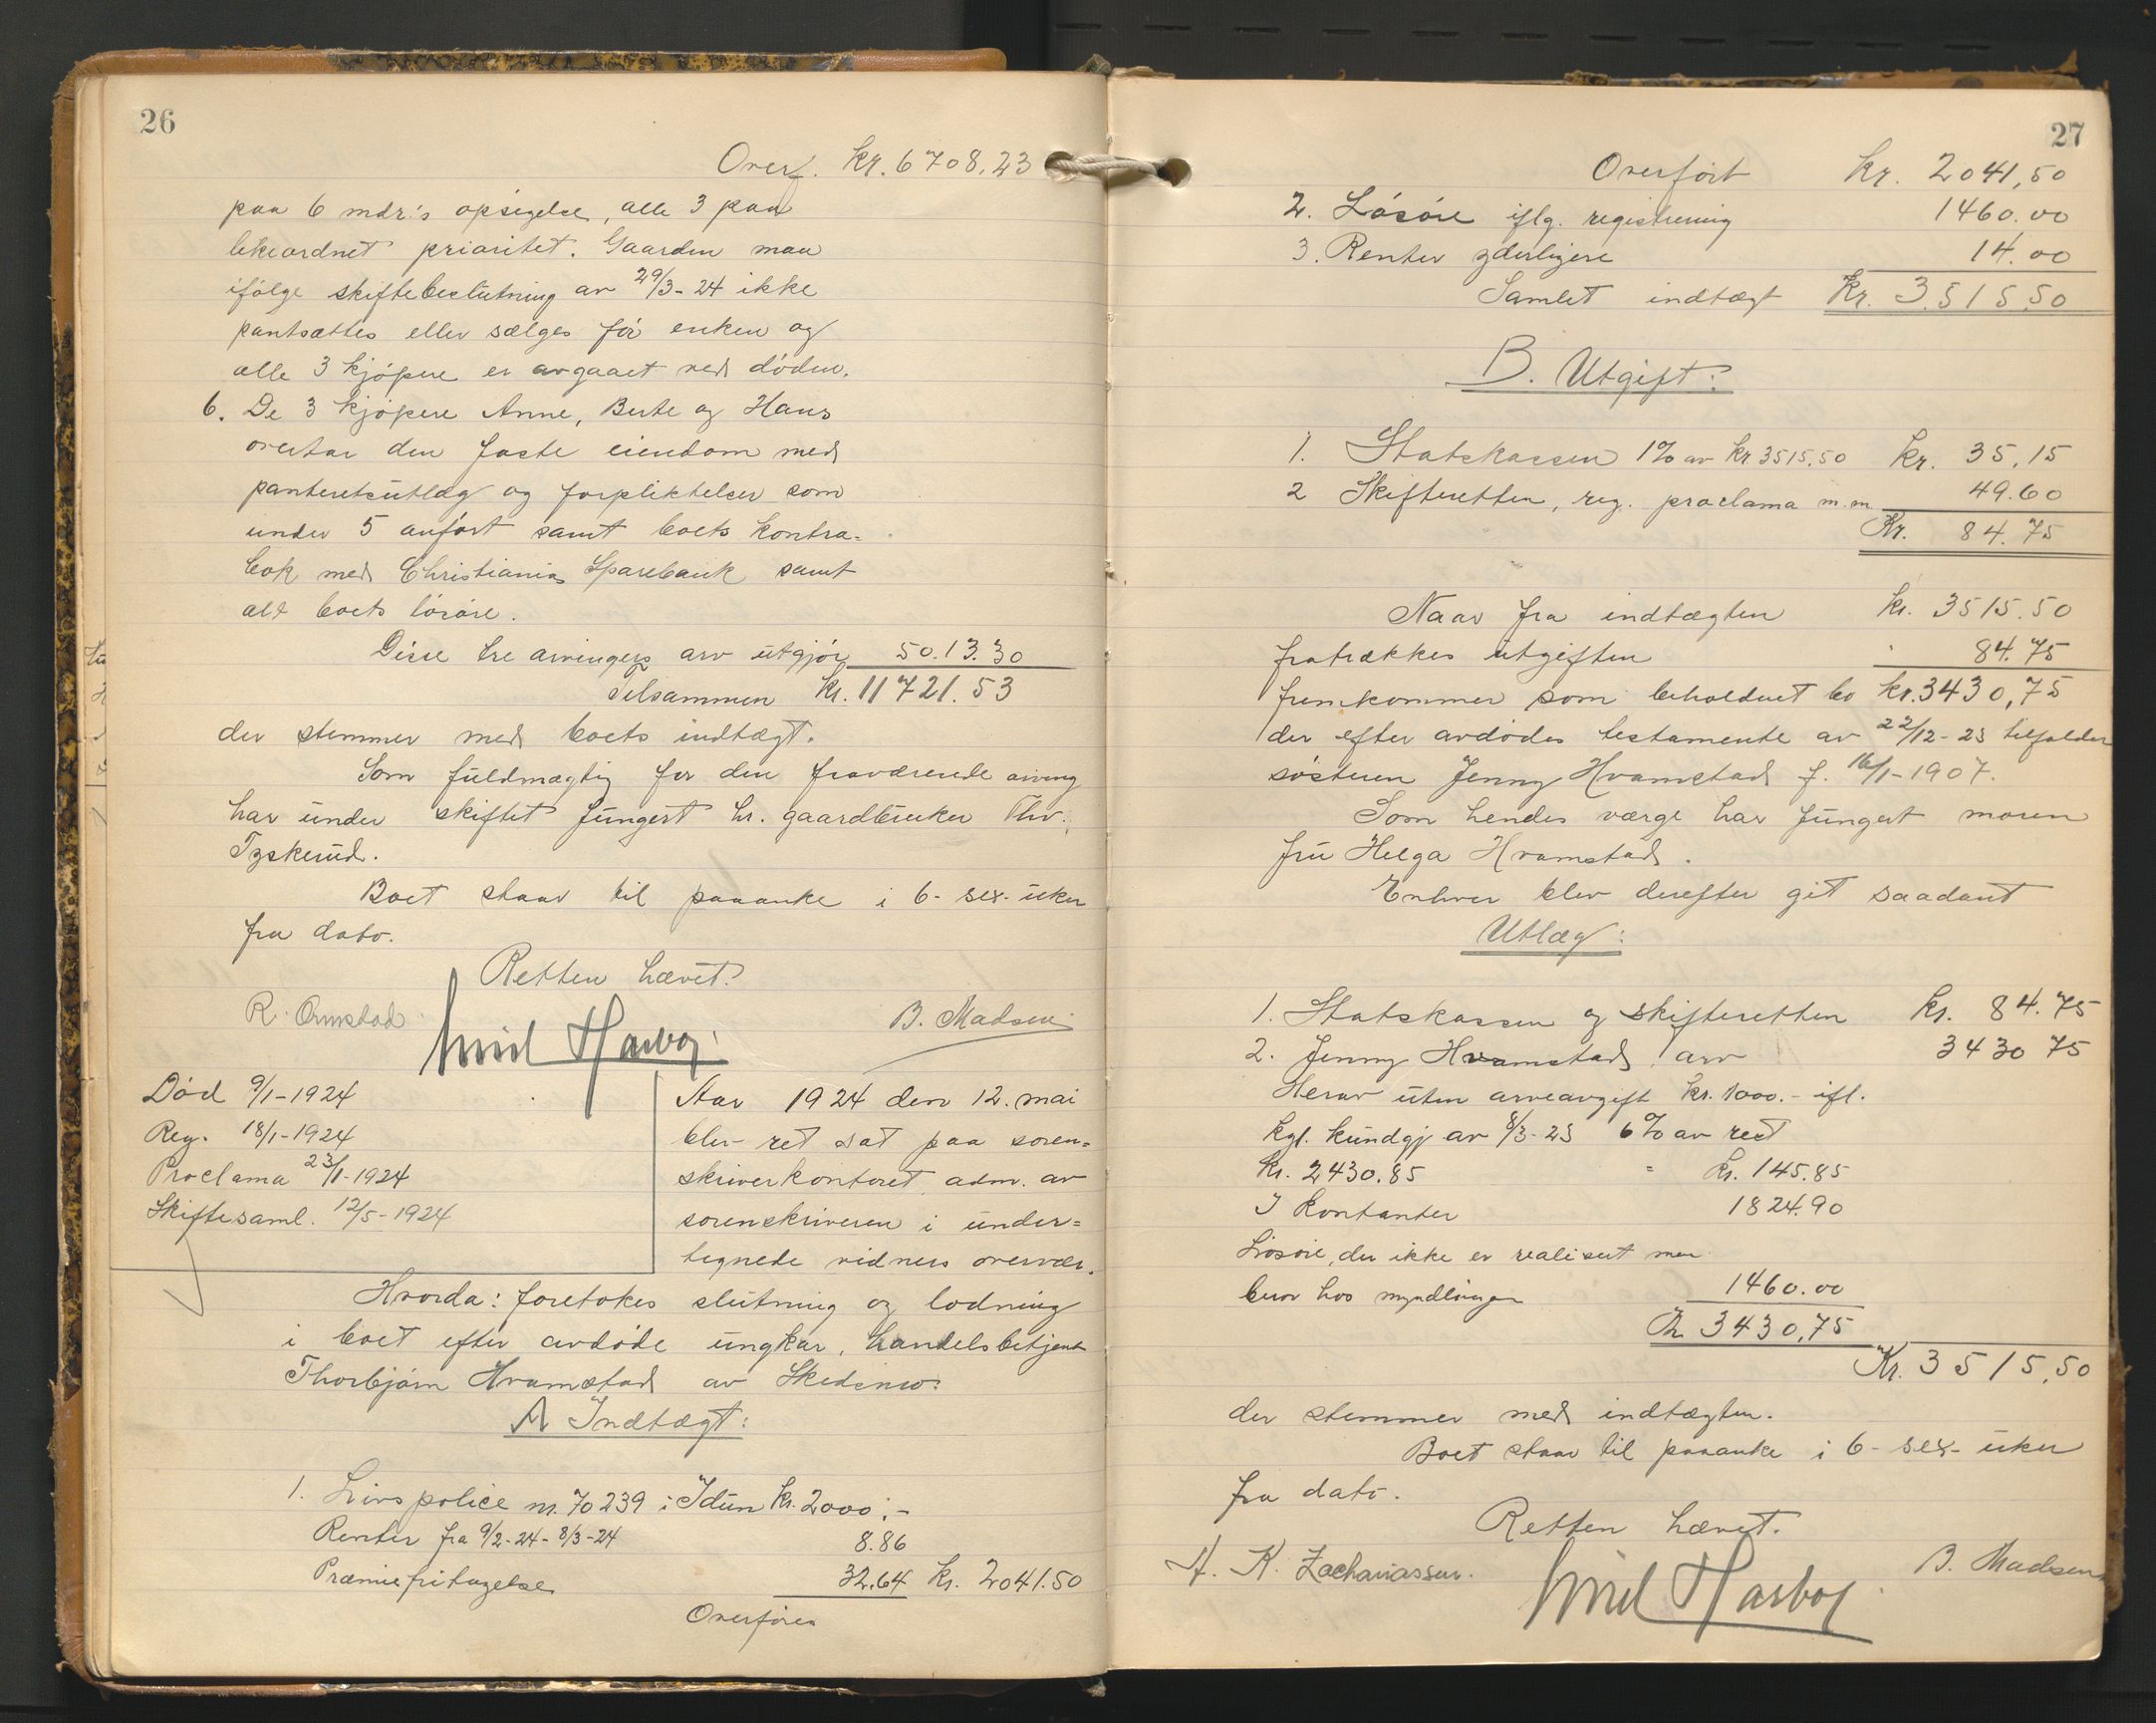 26
Overf. Kr. 6708.23
paa 6 mdr.'s opsigelse, alle 3 paa
likeordnet prioritet. Gaarden maa
ifølge skiftebeslutning av 29/3-24 ikke
pantsættes eller sælges før enken og
alle 3 kjøpere er avgaaet ved døden.
6. De 3 kjøpere Anne, Berte og Hans
overtar den faste eiendom med
panteretsutlæg og forpliktelser som
under 5 anført samt boets kontra-
bok med Christiania Sparebank samt
alt boets løsøre.
Disse tre arvingers arv utgjør 50.13.30
Tilsammen Kr. 11721.53
der stemmer med boets indtægt.
Som fuldmægtig for den fraværende arving
har under skiftet fungert hr. gaardbruker Thv.
Tyskerud.
Boet staar til paaanke i 6- sex- uker
fra dato.
Retten hævet.
R. Ormstad
Emil Harboe
B. Madsen
Død 9/1-1924
Reg. 18/1-1924
Proclama 23/1-1924
Skiftesaml. 12/5-1924
Aar 1924 den 12. mai
blev ret sat paa soren-
skriverkontoret adm. av
sorenskriveren i under-
tegnede vidners overvær.
Hvorda: foretokes slutning og lodning
i boet efter avdøde ungkar, handelsbetjent
Thorbjørn Hvamstad av Skedsmo:
A Indtægt:
1. Livspolice nr. 70239 i Idun Kr. 2000.-
Renter fra 9/2-24 - 8/3-24 8.86
Præmiefritagelse 32.64 Kr. 2041.50
Overføres
27
Overført Kr. 2041,50
2. Løsøre iflg. registrering 1460.00
3. Renter yderligere 14.00
Samlet indtægt Kr. 3515.50
B. Utgift:
1. Statskassen 1% av Kr 3515.50 Kr. 35.15
2 Skifteretten, reg. proclama m.m. 49.60
Kr. 84.75
Naar fra indtægten Kr. 3515.50
fratrækkes utgiften " 84.75
fremkommer som beholdent bo Kr. 3430,75
der efter avdødes testamente av 22/12-23 tilfalder
søsteren Jenny Hvamstad f. 16/1-1907.
Som hendes værge har fungert moren
fru Helga Hvamstad.
Enhver blev derefter git saadant
Utlæg:
1. Statskassen og skifteretten Kr. 84.75
2. Jenny Hvamstad, arv 3430 75
Herav uten arveavgift Kr. 1000.- ifl.
kgl. kundgj av 8/3-23 6% av rest
Kr. 2430.85 = Kr. 145.85
I kontanter 1824.90
Løsøre, der ikke er realisert men
beror hos myndlingen 1460.00
Kr 3430,75
Kr. 3515,50
der stemmer med indtægten.
Boet staar til paaanke i 6- sex- uker
fra dato.
Retten hævet.
A. K. Zachariassen.
Emil Harboe
B. Madsen